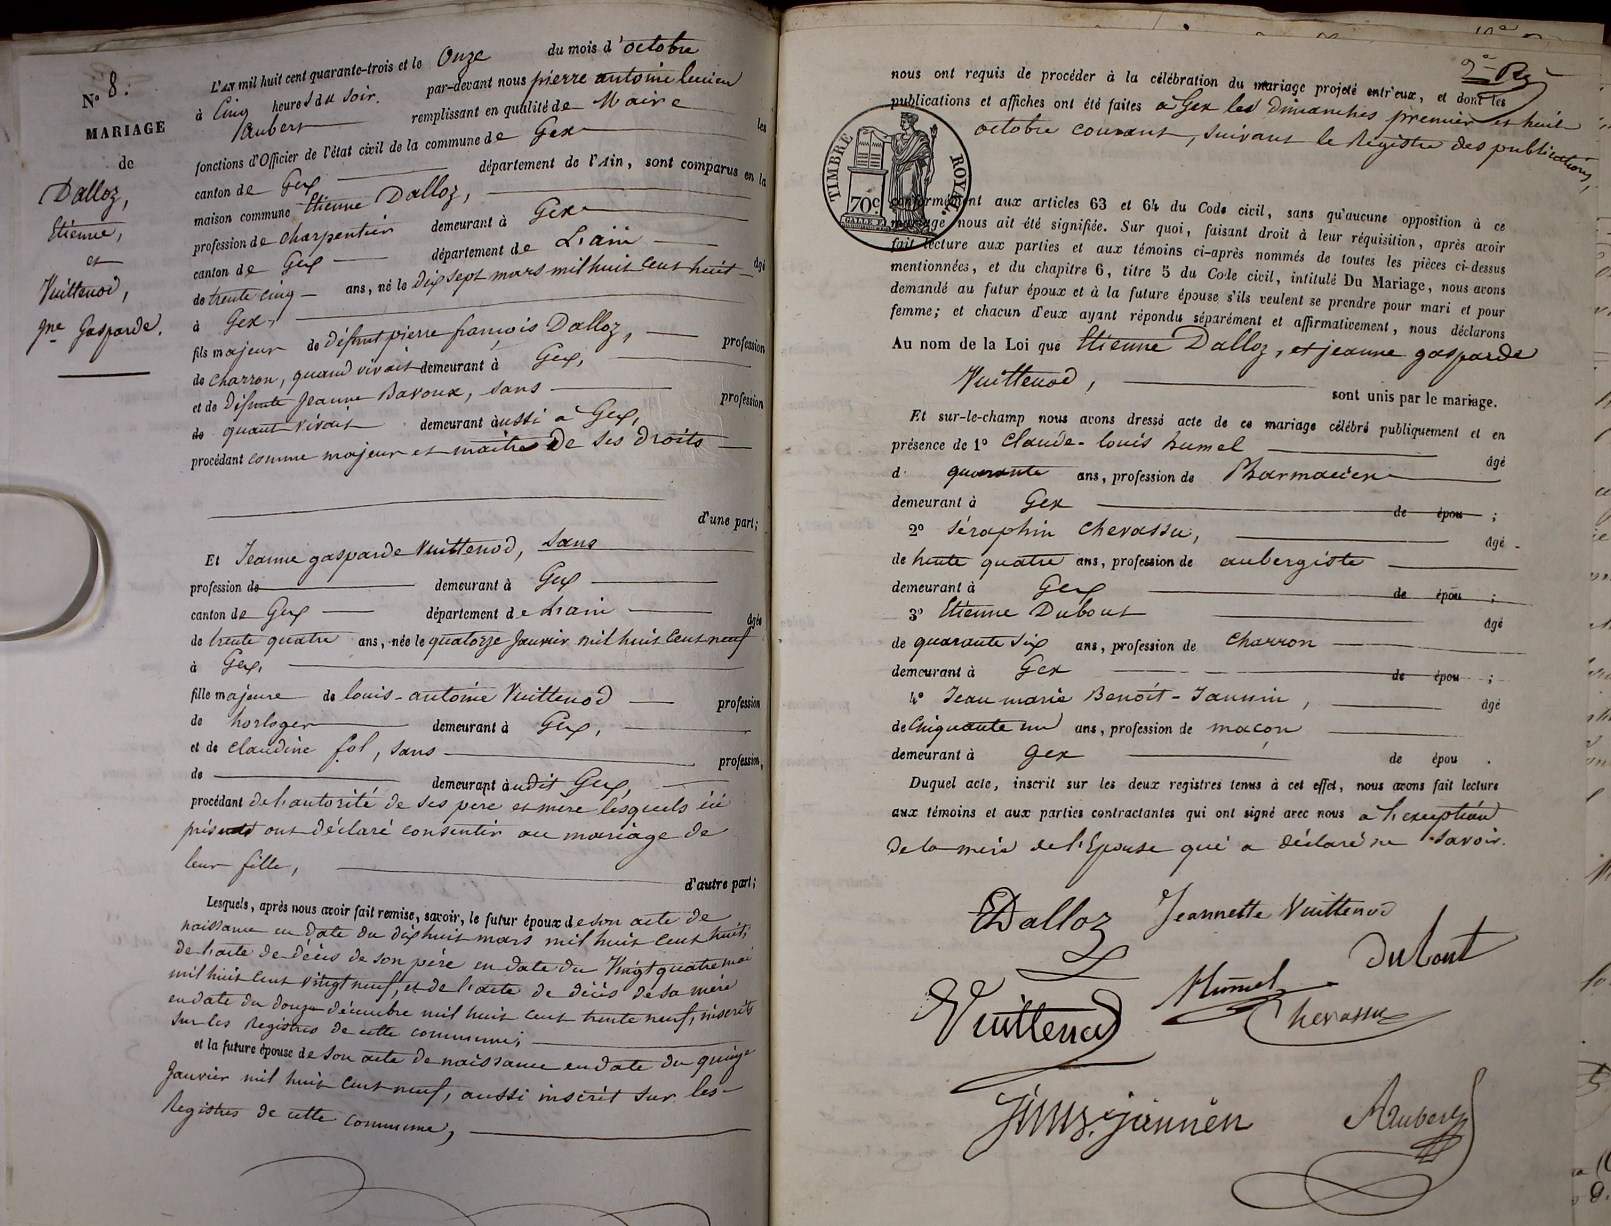 N° 8.
MARIAGE
de
Dalloz,
Etienne,
et
Vuittenod,
Jne Gasparde.
L'AN mil huit cent quarante-trois et le Onze du mois d'octobre
à Cinq heures du soir. par-devant nous pierre antoine lucien
Aubert remplissant en qualité de Maire les
fonctions d'Officier de l'état civil de la commune de Gex
canton de Gex département de l'Ain, sont comparus en la
maison commune Etienne Dalloz,
profession de charpentier demeurant à Gex
canton de Gex département de L'ain âgé
de trente cinq ans, né le Dix sept mars mil huit cent huit
à Gex,
fils majeur de défunt pierre françois Dalloz, profession
de charron, quand vivait demeurant à Gex,
et de défunte Jeanne Bavoux, sans profession
de quant vivait demeurant aussi à Gex,
procédant comme majeur et maitre de ses droits
d'une part;
Et Jeanne gasparde Vuittenod, sans
profession de demeurant à Gex
canton de Gex département de L'ain âgée
de trente quatre ans, née le quatorze Janvier mil huit cent neuf
à Gex,
fille majeure de louis-antoine Vuittenod profession
de horloger demeurant à Gex,
et de claudine fol, sans profession,
de demeurant àudit Gex,
procédant de l'autorité de ses pere et mère lesquels ici
présents ont déclaré consentir au mariage de
leur fille,
d'autre part;
Lesquels, après nous avoir fait remise, savoir, le futur époux de son acte de
naissance en date du dix huit mars mil huit cent huit,
de l'acte de décès de son père en date du Vingt quatre mai
mil huit cent vingt neuf, et de l'acte de décès de sa mère
en date du douze décembre mil huit cent trente neuf, inscrits
sur les Registres de cette commune;
et la future épouse de son acte de naissance en date du quinze
Janvier mil huit cent neuf, aussi inscrit sur les
Registres de cette commune,
nous ont requis de procéder à la célébration du mariage projeté entr'eux, et dont les
publications et affiches ont été faites à Gex les Dimanches premier et huit
octobre courant, suivant le Registre des publications,
TIMBRE ROYAL.
70c.
conformément aux articles 63 et 64 du Code civil, sans qu'aucune opposition à ce
mariage nous ait été signifiée. Sur quoi, faisant droit à leur réquisition, après avoir
fait lecture aux parties et aux témoins ci-après nommés de toutes les pièces ci-dessus
mentionnées, et du chapitre 6, titre 5 du Code civil, intitulé Du Mariage, nous avons
demandé au futur époux et à la future épouse s'ils veulent se prendre pour mari et pour
femme; et chacun d'eux ayant répondu séparément et affirmativement, nous déclarons
Au nom de la Loi que Etienne Dalloz, et jeanne gasparde
Vuittenod, sont unis par le mariage.
Et sur-le-champ nous avons dressé acte de ce mariage célébré publiquement et en
présence de 1° claude-louis humel âgé
d quarante ans, profession de Pharmacien
demeurant à Gex de épou ;
2° Séraphin chevassu, âgé
de trente quatre ans, profession de aubergiste
demeurant à Gex de épou ;
3° Etienne Dubout âgé
de quarante six ans, profession de charron
demeurant à Gex de épou ;
4° Jean marie Benoit-Jannin, âgé
de Cinquante un ans, profession de maçon
demeurant à gex de épou .
Duquel acte, inscrit sur les deux registres tenus à cet effet, nous avons fait lecture
aux témoins et aux parties contractantes qui ont signé avec nous à l'exception
de la mère de l'Epouse qui a déclaré ne savoir.
EDalloz Jeannette Vuittenod
Dubout
Vuittenod Humel Chevassu
Aubert